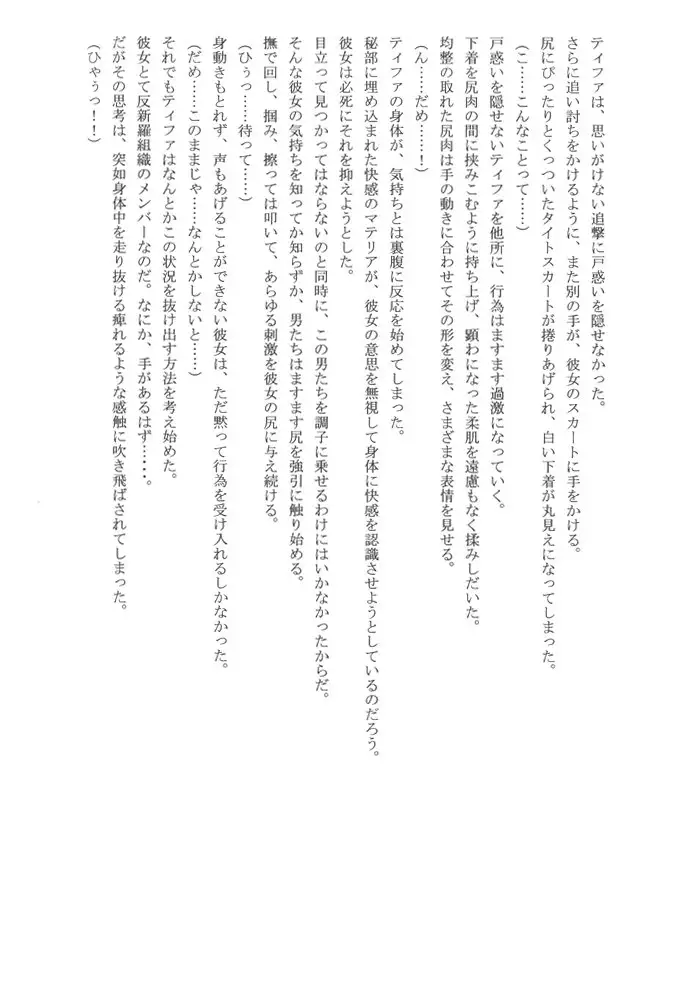 ティファは、思いがけない追撃に戸惑いを隠せなかった。
さらに追い討ちをかけるように、また別の手が、彼女のスカートに手をかける。
尻にぴったりとくっついたタイトスカートが捲りあげられ、白い下着が丸見えになってしまった。
（こ……こんなことって……）
戸惑いを隠せないティファを他所に、行為はますます過激になっていく。
下着を尻肉の間に挟みこむように持ち上げ、顕わになった柔肌を遠慮もなく揉みしだいた。
均整の取れた尻肉は手の動きに合わせてその形を変え、さまざまな表情を見せる。
（ん……だめ……！）
ティファの身体が、気持ちとは裏腹に反応を始めてしまった。
秘部に埋め込まれた快感のマテリアが、彼女の意思を無視して身体に快感を認識させようとしているのだろう。
彼女は必死にそれを抑えようとした。
目立って見つかってはならないのと同時に、この男たちを調子に乗せるわけにはいかなかったからだ。
そんな彼女の気持ちを知ってか知らずか、男たちはますます尻を強引に触り始める。
撫で回し、掴み、擦っては叩いて、あらゆる刺激を彼女の尻に与え続ける。
（ひぅっ……待って……）
身動きもとれず、声もあげることができない彼女は、ただ黙って行為を受け入れるしかなかった。
（だめ……このままじゃ……なんとかしないと……）
それでもティファはなんとかこの状況を抜け出す方法を考え始めた。
彼女とて反新羅組織のメンバーなのだ。なにか、手があるはず・・・・。
だがその思考は、突如身体中を走り抜ける痺れるような感触に吹き飛ばされてしまった。
（ひゃぅっ！！）